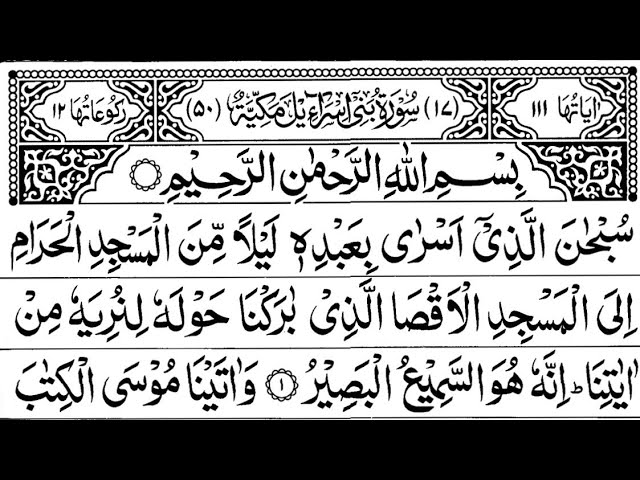 اٰيَاتُهَا ١١١ (١٧) سُوْرَةُ بَنِيْٓ اِسْرَآءِيْلَ مَكِّيَّةٌ (٥٠) رُكُوْعَاتُهَا ١٢
بِسْمِ اللّٰهِ الرَّحْمٰنِ الرَّحِيْمِ
سُبْحٰنَ الَّذِيْٓ اَسْرٰى بِعَبْدِهٖ لَيْلًا مِّنَ الْمَسْجِدِ الْحَرَامِ
اِلَى الْمَسْجِدِ الْاَقْصَا الَّذِيْ بٰرَكْنَا حَوْلَهٗ لِنُرِيَهٗ مِنْ
اٰيٰتِنَا ؕ اِنَّهٗ هُوَ السَّمِيْعُ الْبَصِيْرُ ١ وَاٰتَيْنَا مُوْسَى الْكِتٰبَ